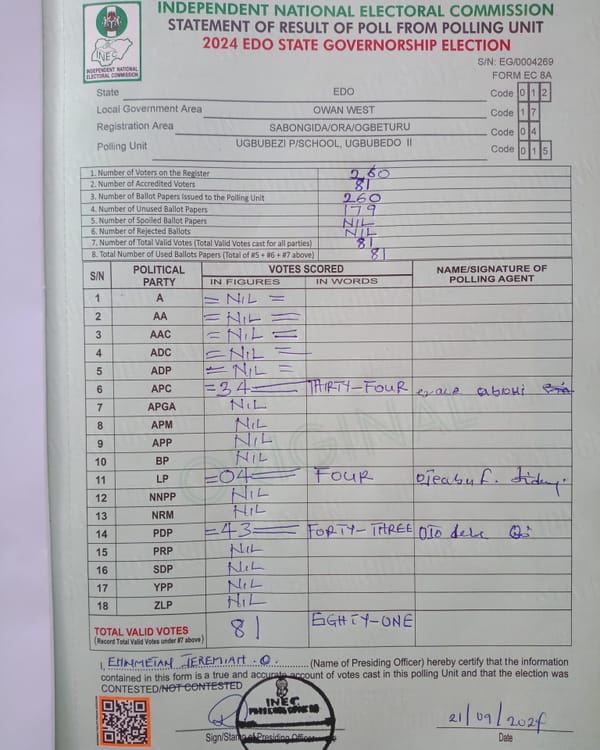 INDEPENDENT NATIONAL ELECTORAL COMMISSION
STATEMENT OF RESULT OF POLL FROM POLLING UNIT
2024 EDO STATE GOVERNORSHIP ELECTION
INEC
INDEPENDENT NATIONAL
ELECTORAL COMMISSION
S/N: EG/0004269
FORM EC 8A
State EDO Code 0 1 2
Local Government Area OWAN WEST Code 1 7
Registration Area SABONGIDA/ORA/OGBETURU Code 0 4
Polling Unit UGBUBEZI P/SCHOOL, UGBUBEDO II Code 0 1 5
1. Number of Voters on the Register 260
2. Number of Accredited Voters 81
3. Number of Ballot Papers Issued to the Polling Unit 260
4. Number of Unused Ballot Papers 179
5. Number of Spoiled Ballot Papers NIL
6. Number of Rejected Ballots NIL
7. Number of Total Valid Votes (Total Valid Votes cast for all parties) 81
8. Total Number of Used Ballots Papers (Total of #5 + #6 + #7 above) 81
S/N POLITICAL PARTY VOTES SCORED NAME/SIGNATURE OF POLLING AGENT
IN FIGURES IN WORDS
1 A = NIL =
2 AA = NIL =
3 AAC = NIL =
4 ADC = NIL =
5 ADP = NIL =
6 APC =34= THIRTY-FOUR
7 APGA NIL
8 APM NIL
9 APP NIL
10 BP NIL
11 LP =04= FOUR
12 NNPP NIL
13 NRM NIL
14 PDP =43= FORTY-THREE
15 PRP NIL
16 SDP NIL
17 YPP NIL
18 ZLP NIL
ORIGINAL
TOTAL VALID VOTES 81 EIGHTY-ONE
(Record Total Valid Votes under #7 above)
I, JEREMIAH .O. (Name of Presiding Officer) hereby certify that the information
contained in this form is a true and accurate account of votes cast in this polling Unit and that the election was
CONTESTED/NOT CONTESTED
INEC
Sign/Stamp of Presiding Officer
21/09/2024
Date